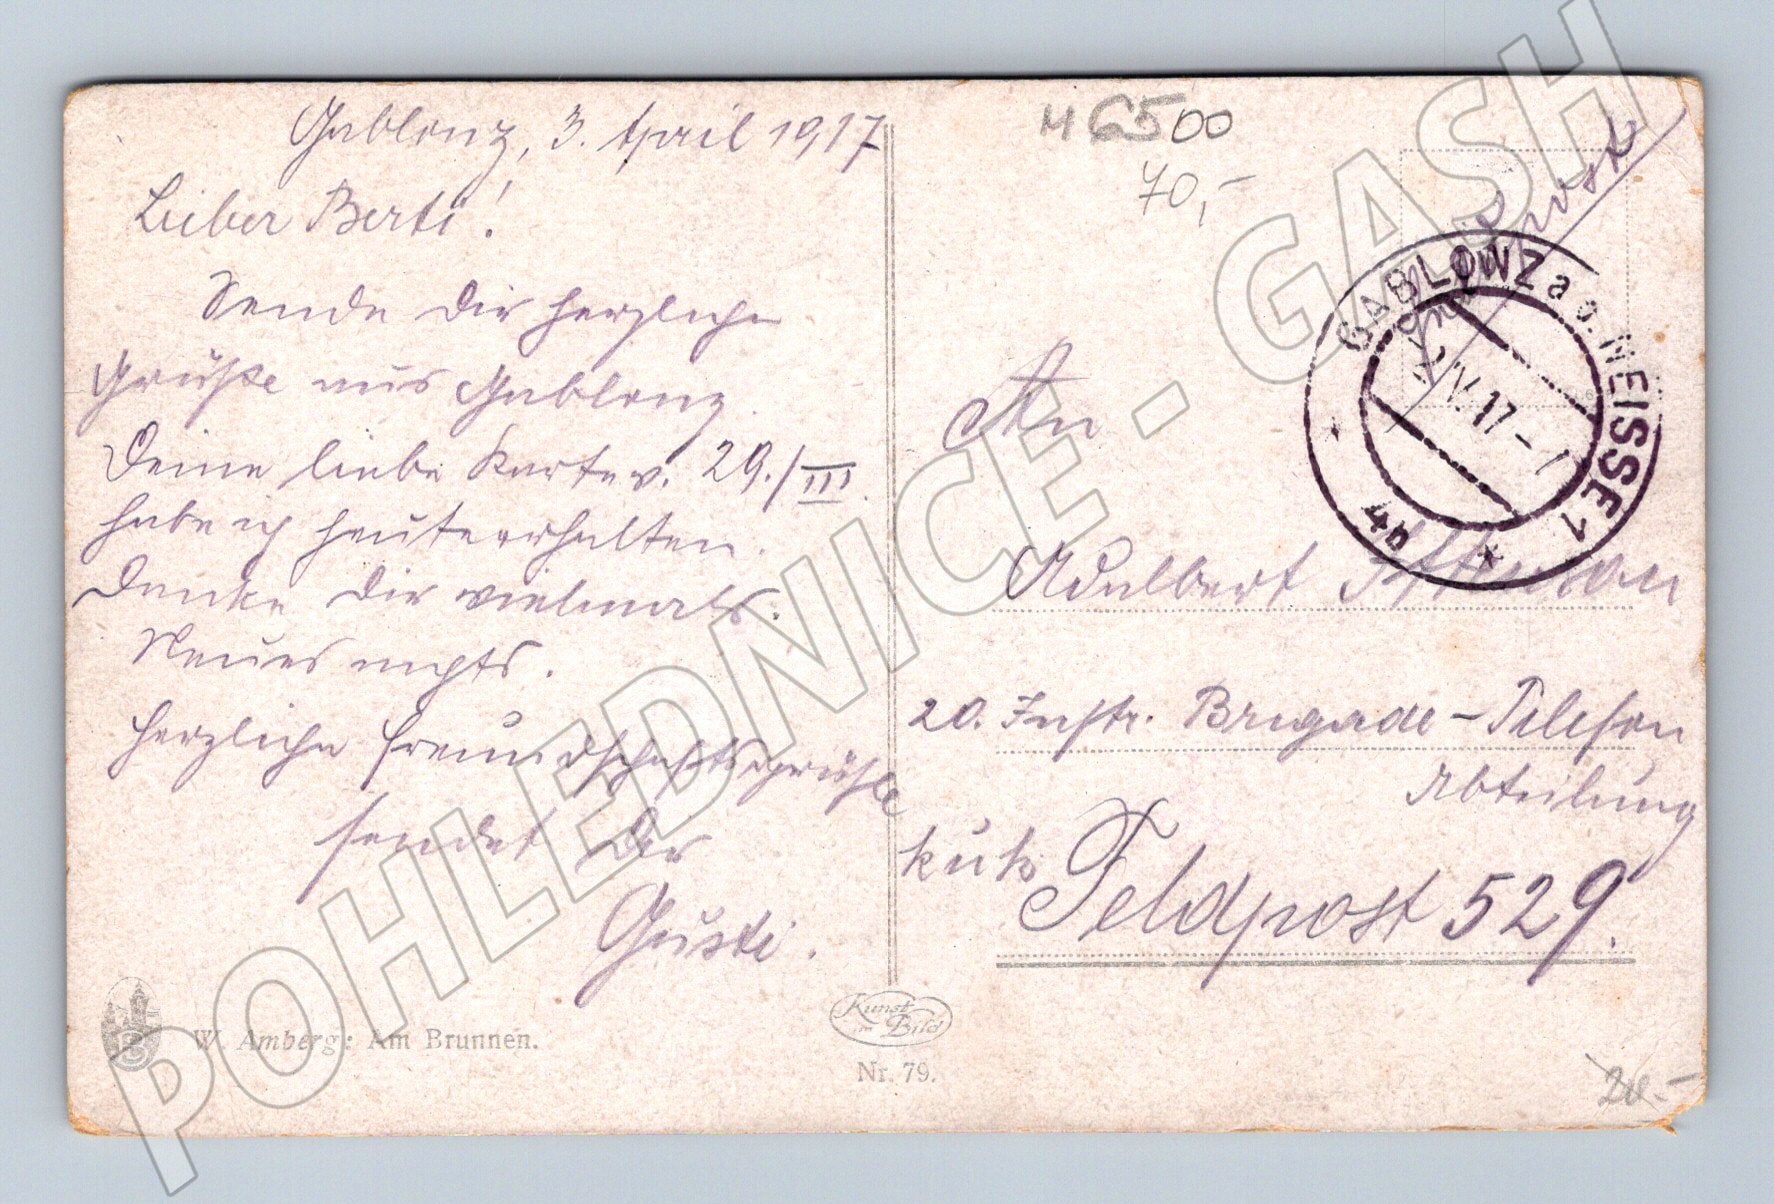 Gablonz, 3. April 1917
Lieber Berti!
Sende Dir herzliche
Grüße aus Gablonz.
Deine liebe Karte v. 29./III.
habe ich heute erhalten.
Danke Dir vielmals.
Neues nichts.
Herzliche Freundschaftsgrüße
sendet Dir
Gusti.
W. Amberg: Am Brunnen.
Kunst im Bild
Nr. 79.
M 6500
70,-
Feldpost
GABLONZ a. d. NEISSE 1
IV. 17
4b
An
Adalbert
20. Inftr. Brigade-Telefon
Abteilung
k.u.k.
Feldpost 529.
20.-
POHLEDNICE - GASH